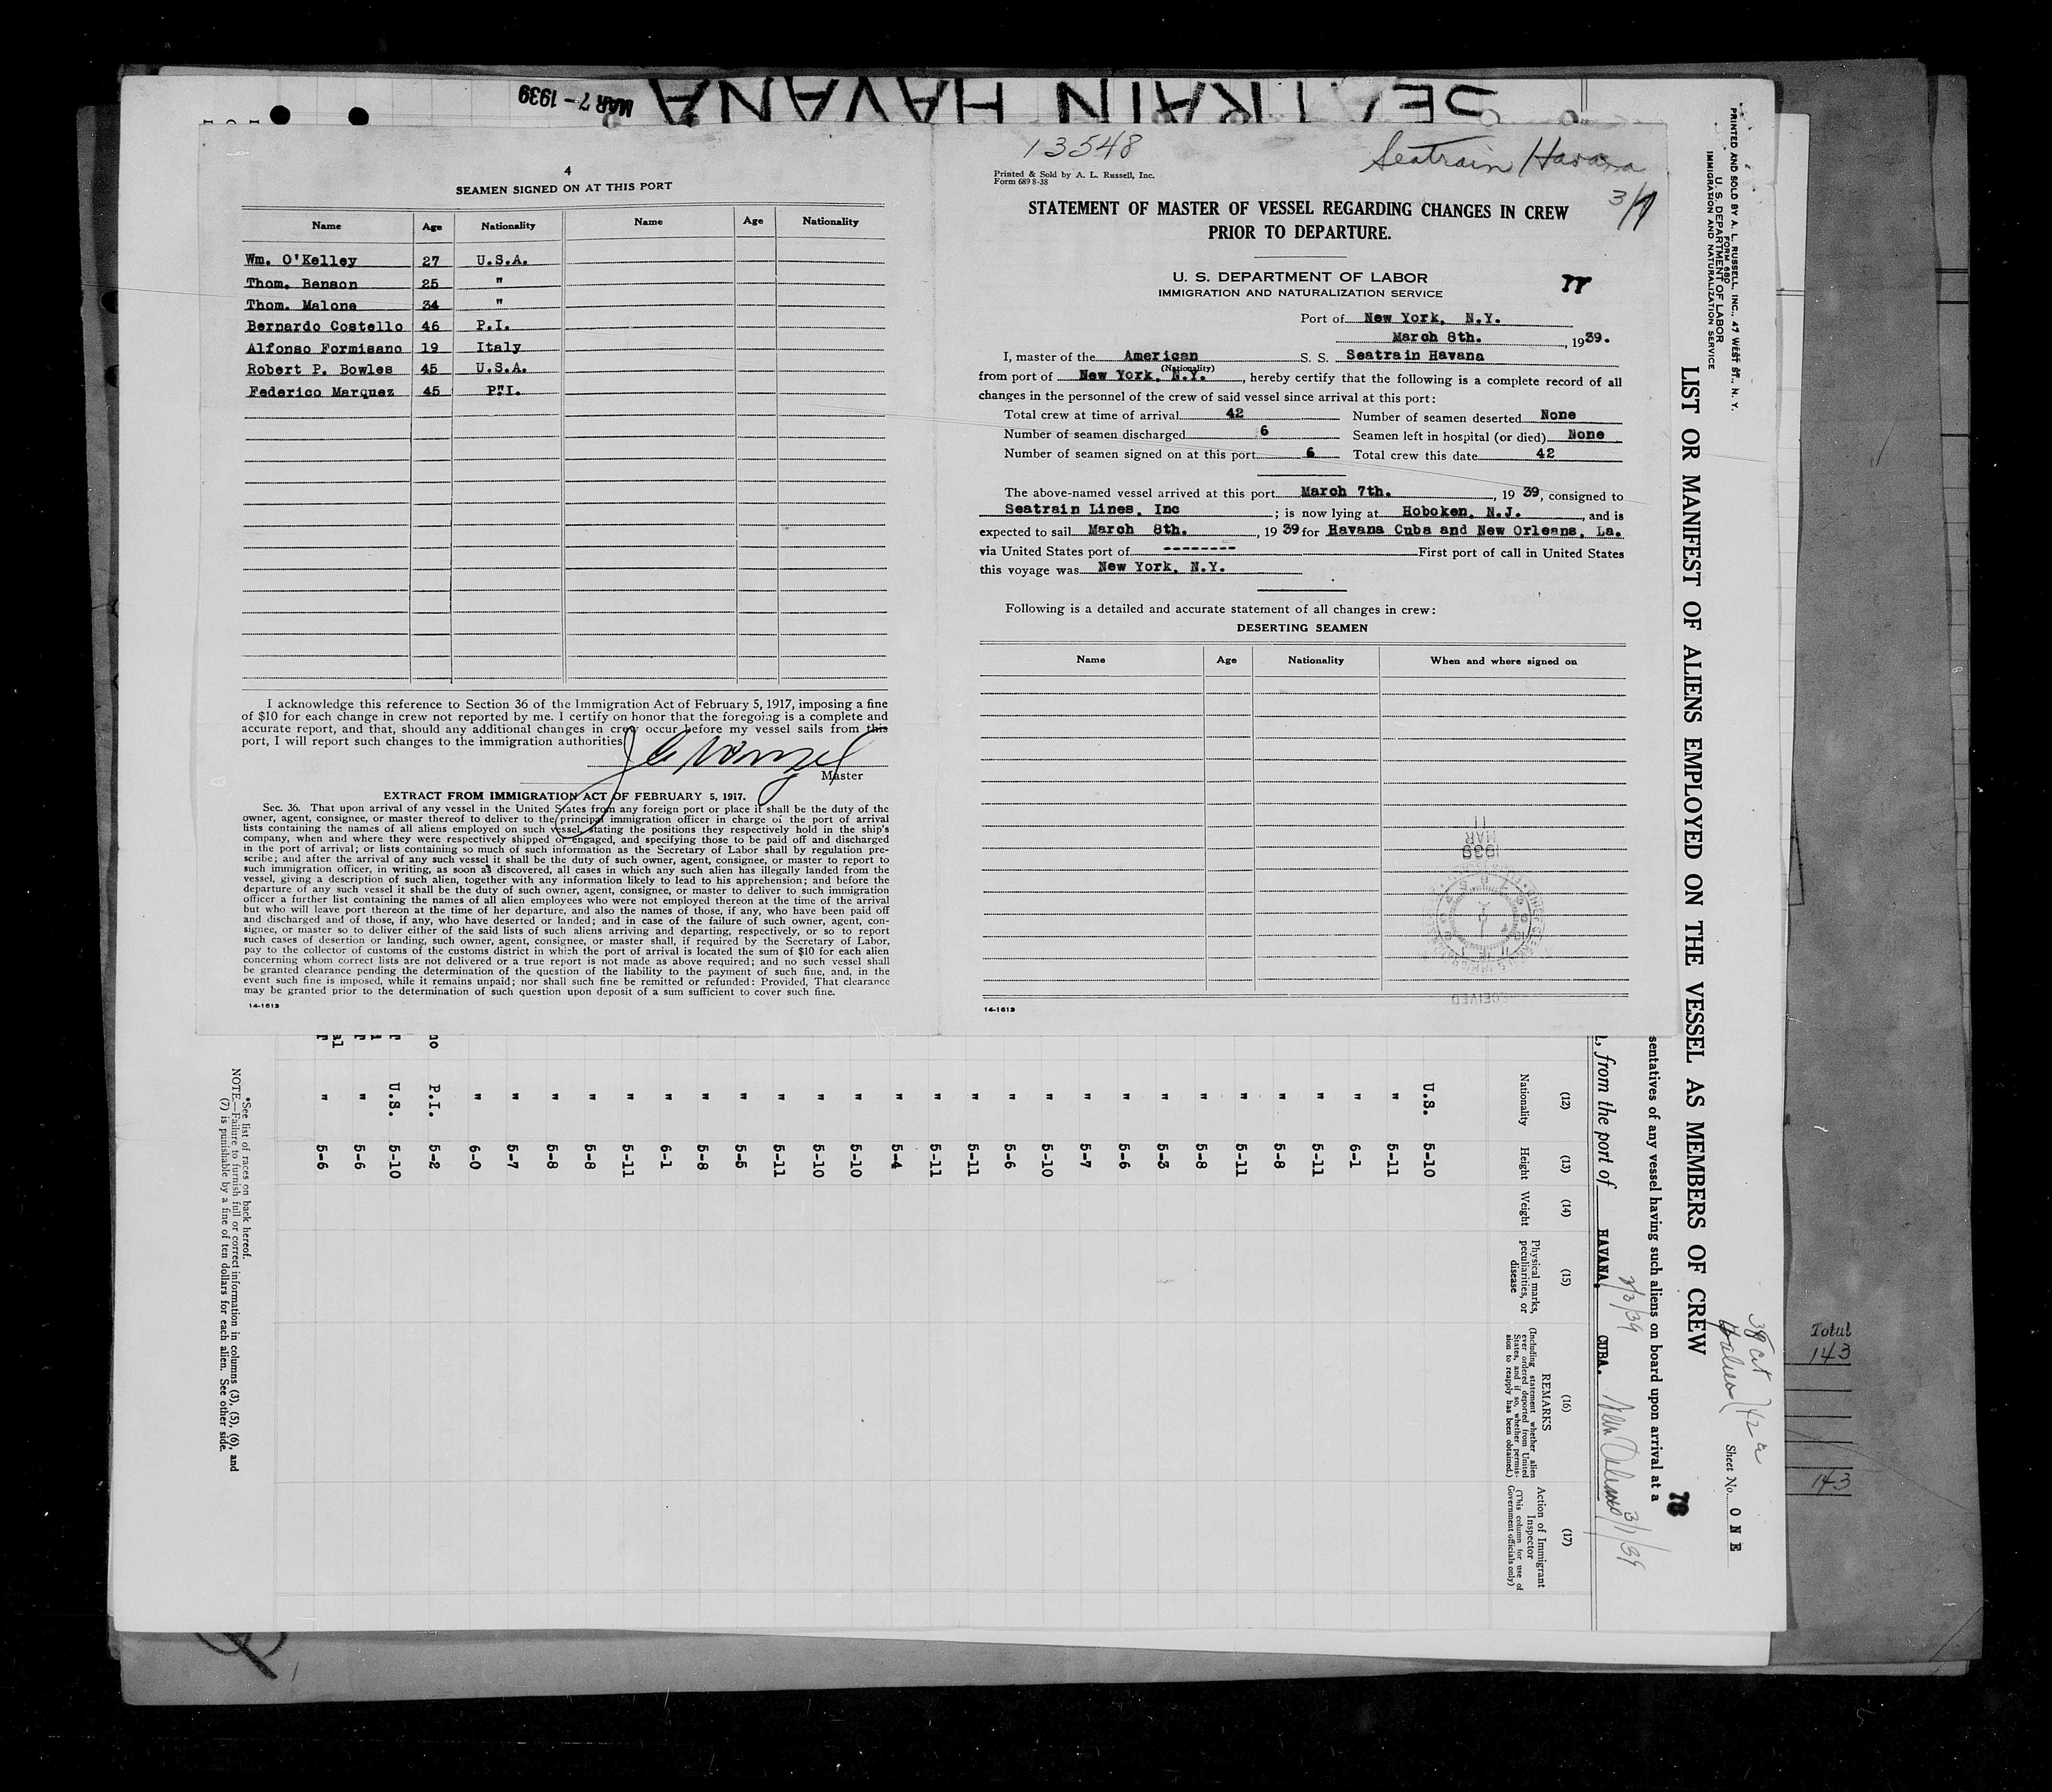 SEATRAIN HAVANA
MAR 7 - 1939
4
SEAMEN SIGNED ON AT THIS PORT
Name Age Nationality Name Age Nationality
Wm. O'Kelley 27 U.S.A.
Thom. Benson 25 "
Thom. Malone 34 "
Bernardo Costello 46 P.I.
Alfonso Formisano 19 Italy
Robert P. Bowles 45 U.S.A.
Federico Marquez 45 P.I.
I acknowledge this reference to Section 36 of the Immigration Act of February 5, 1917, imposing a fine
of $10 for each change in crew not reported by me. I certify on honor that the foregoing is a complete and
accurate report, and that, should any additional changes in crew occur before my vessel sails from this
port, I will report such changes to the immigration authorities.
Master
EXTRACT FROM IMMIGRATION ACT OF FEBRUARY 5, 1917.
Sec. 36. That upon arrival of any vessel in the United States from any foreign port or place it shall be the duty of the
owner, agent, consignee, or master thereof to deliver to the principal immigration officer in charge of the port of arrival
lists containing the names of all aliens employed on such vessel, stating the positions they respectively hold in the ship's
company, when and where they were respectively shipped or engaged, and specifying those to be paid off and discharged
in the port of arrival; or lists containing so much of such information as the Secretary of Labor shall by regulation pre-
scribe; and after the arrival of any such vessel it shall be the duty of such owner, agent, consignee, or master to report to
such immigration officer, in writing, as soon as discovered, all cases in which any such alien has illegally landed from the
vessel, giving a description of such alien, together with any information likely to lead to his apprehension; and before the
departure of any such vessel it shall be the duty of such owner, agent, consignee, or master to deliver to such immigration
officer a further list containing the names of all alien employees who were not employed thereon at the time of the arrival
but who will leave port thereon at the time of her departure, and also the names of those, if any, who have been paid off
and discharged and of those, if any, who have deserted or landed; and in case of the failure of such owner, agent, con-
signee, or master so to deliver either of the said lists of such aliens arriving and departing, respectively, or so to report
such cases of desertion or landing, such owner, agent, consignee, or master shall, if required by the Secretary of Labor,
pay to the collector of customs of the customs district in which the port of arrival is located the sum of $10 for each alien
concerning whom correct lists are not delivered or a true report is not made as above required; and no such vessel shall
be granted clearance pending the determination of the question of the liability to the payment of such fine, and, in the
event such fine is imposed, while it remains unpaid; nor shall such fine be remitted or refunded: Provided, That clearance
may be granted prior to the determination of such question upon deposit of a sum sufficient to cover such fine.
14-1613
13548
Seatrain Havana
3/7
Printed & Sold by A. L. Russell, Inc.
Form 689 8-38
STATEMENT OF MASTER OF VESSEL REGARDING CHANGES IN CREW
PRIOR TO DEPARTURE.
U. S. DEPARTMENT OF LABOR
IMMIGRATION AND NATURALIZATION SERVICE
77
Port of New York, N.Y.
March 8th., 1939.
I, master of the American S. S. Seatrain Havana
(Nationality)
from port of New York, N.Y., hereby certify that the following is a complete record of all
changes in the personnel of the crew of said vessel since arrival at this port:
Total crew at time of arrival 42 Number of seamen deserted None
Number of seamen discharged 6 Seamen left in hospital (or died) None
Number of seamen signed on at this port 6 Total crew this date 42
The above-named vessel arrived at this port March 7th., 19 39, consigned to
Seatrain Lines, Inc ; is now lying at Hoboken, N.J., and is
expected to sail March 8th., 19 39 for Havana Cuba and New Orleans, La.
via United States port of -------- First port of call in United States
this voyage was New York, N.Y.
Following is a detailed and accurate statement of all changes in crew:
DESERTING SEAMEN
Name Age Nationality When and where signed on
1939
MAR
11
RECEIVED
14-1613
PRINTED AND SOLD BY A. L. RUSSELL, INC., 47 WEST ST., N. Y.
FORM 680
U. S. DEPARTMENT OF LABOR
IMMIGRATION AND NATURALIZATION SERVICE
LIST OR MANIFEST OF ALIENS EMPLOYED ON THE VESSEL AS MEMBERS OF CREW
Sheet No. ONE
78
sentatives of any vessel having such aliens on board upon arrival at a
, from the port of HAVANA, CUBA.
3/3/39
3/1/39
(12) (13) (14) (15) (16) (17)
Nationality
Height
Weight
Physical marks, peculiarities, or disease
REMARKS
(Including statement whether alien ever ordered deported from United States, and if so, whether permission to reapply has been obtained.)
Action of Immigrant Inspector
(This column for use of Government officials only)
U.S. 5-10
" 5-11
" 6-1
" 5-11
" 5-8
" 5-11
" 5-8
" 5-3
" 5-6
" 5-7
" 5-10
" 5-6
" 5-11
" 5-11
" 5-4
" 5-10
" 5-10
" 5-11
" 5-5
" 5-8
" 6-1
" 5-11
" 5-8
" 5-8
" 5-7
" 6-0
P.I. 5-2
U.S. 5-10
" 5-6
" 5-6
*See list of races on back hereof.
NOTE.—Failure to furnish full or correct information in columns (3), (5), (6), and
(7) is punishable by a fine of ten dollars for each alien. See other side.
Total
143
143